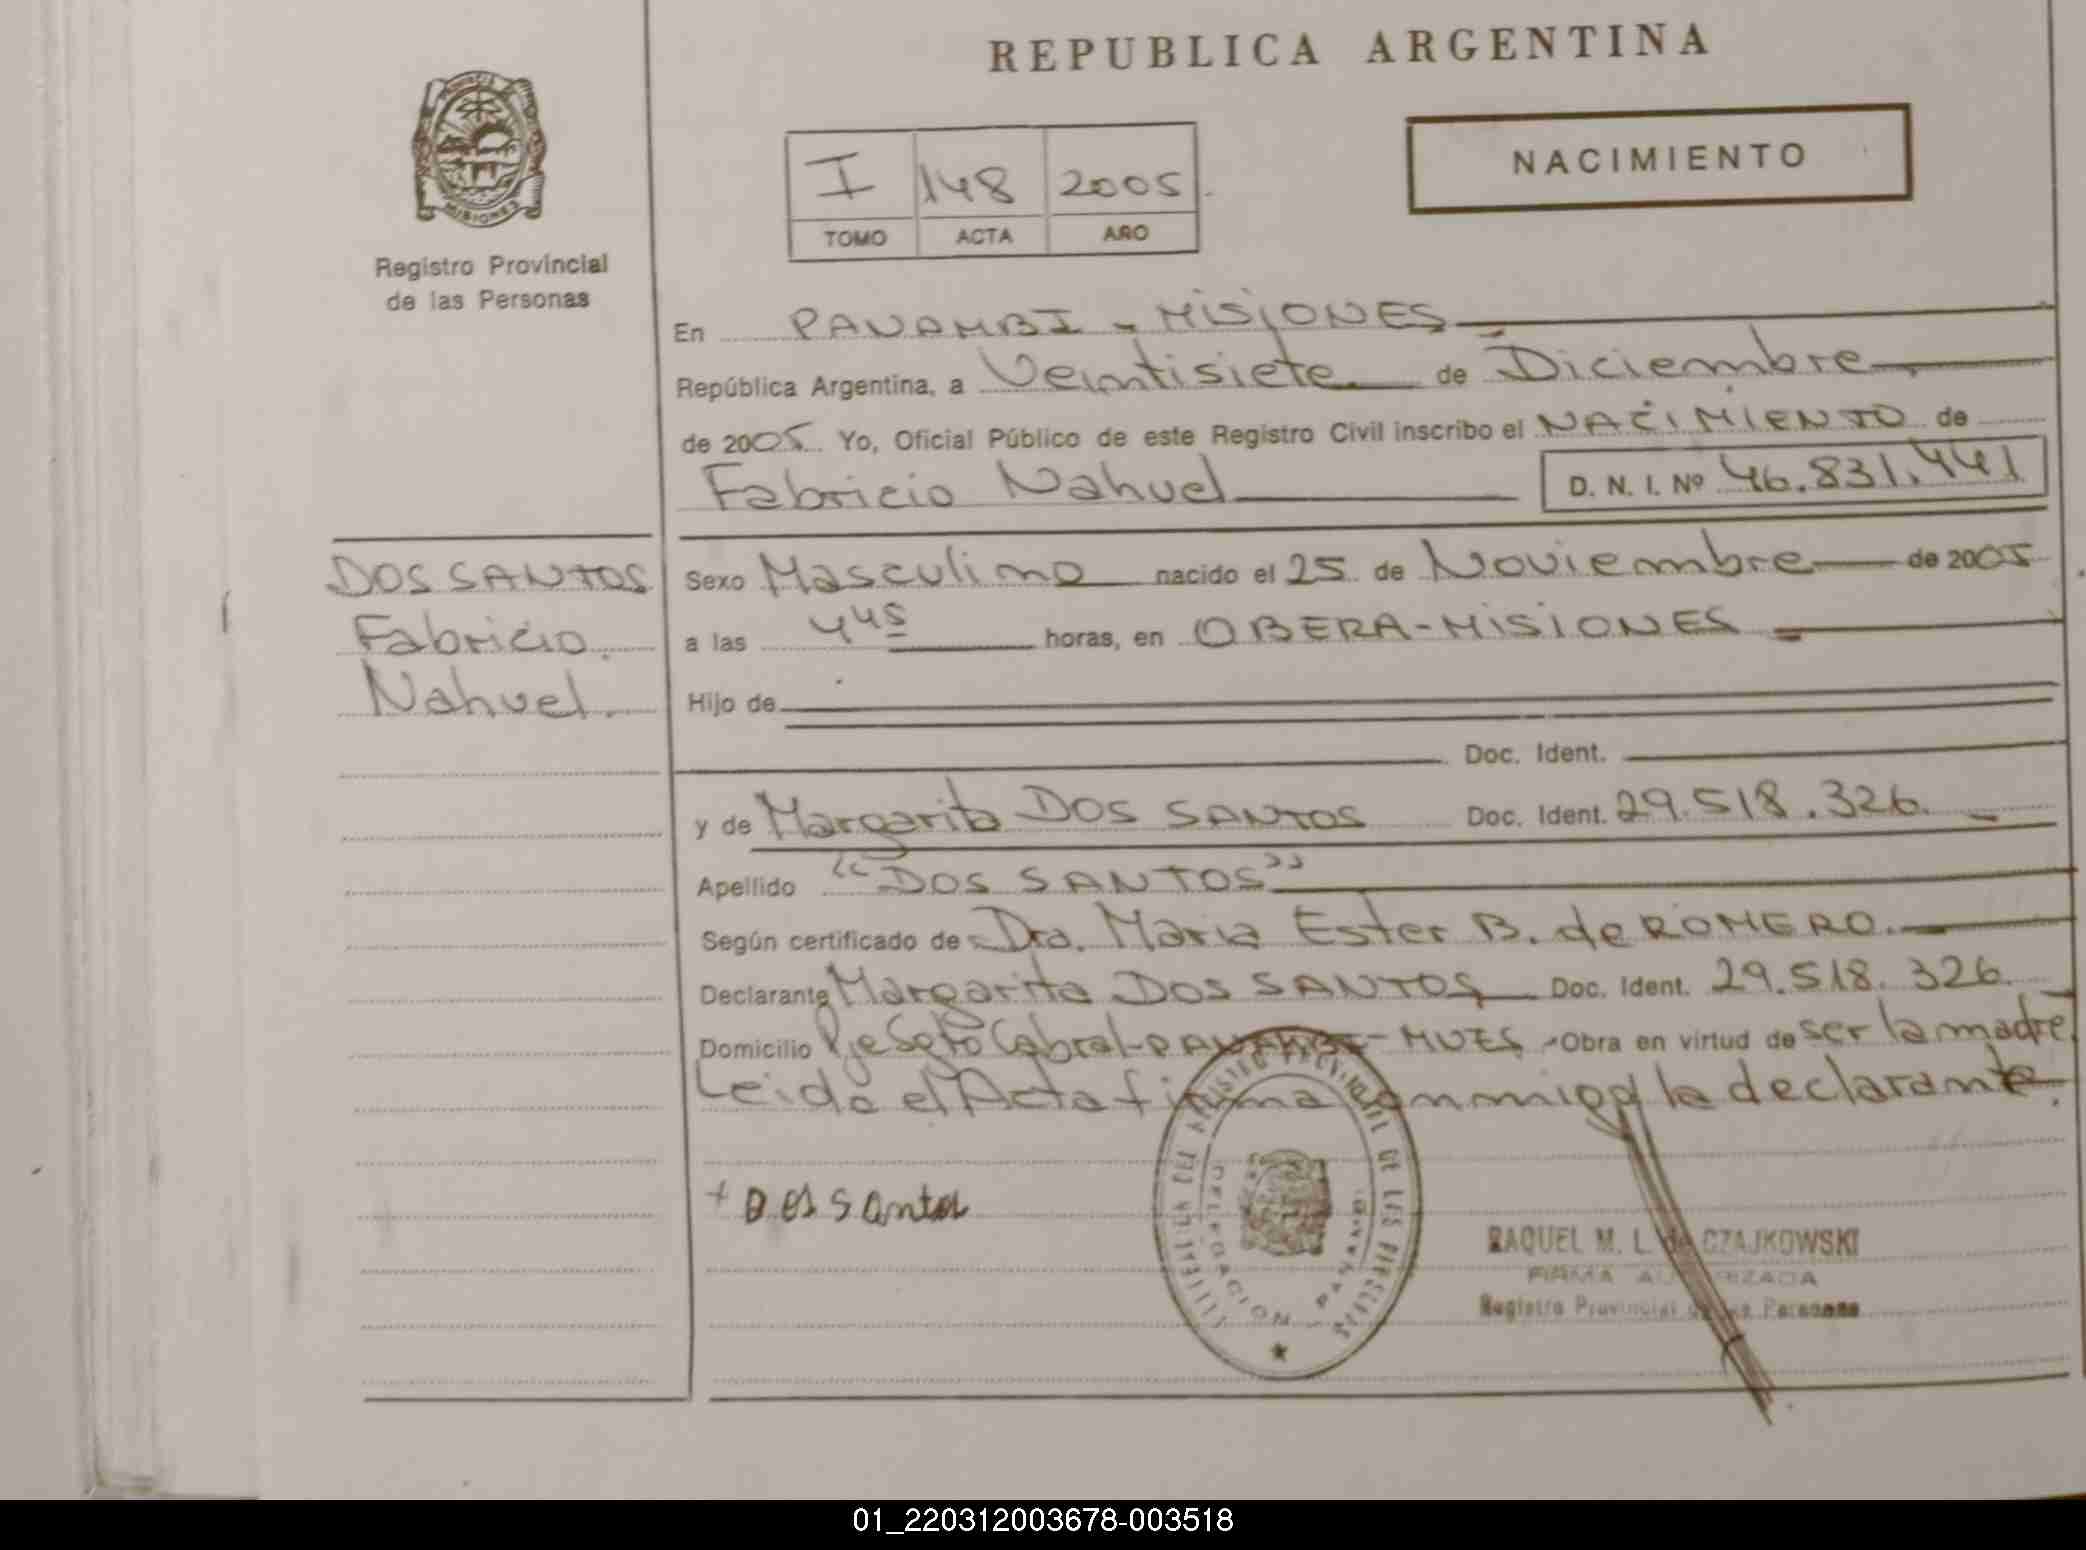 REPUBLICA ARGENTINA
PROVINCIA
MISIONES
Registro Provincial
de las Personas
NACIMIENTO
I 148 2005
TOMO ACTA AÑO
En PANAMBI - MISIONES
República Argentina, a Veintisiete de Diciembre
de 2005 Yo, Oficial Público de este Registro Civil inscribo el NACIMIENTO de
Fabricio Nahuel D. N. I. Nº 46.831.441
DOS SANTOS
Fabricio
Nahuel.
Sexo Masculino nacido el 25 de Noviembre de 2005
a las 4 45 horas, en OBERA-MISIONES
Hijo de
Doc. Ident.
y de Margarita DOS SANTOS Doc. Ident. 29.518.326.
Apellido "DOS SANTOS"
Según certificado de Dra. Maria Ester B. de ROMERO.
Declarante Margarita DOS SANTOS Doc. Ident. 29.518.326.
Domicilio Pje Sgto Cabral-PANAMBI-MNES Obra en virtud de ser la madre
Leida el Acta firma conmigo la declarante.
+ Dos Santos
DELEGACION PANAMBI
RAQUEL M. L. de CZAJKOWSKI
FIRMA AUTORIZADA
Registro Provincial de las Personas
01_220312003678-003518